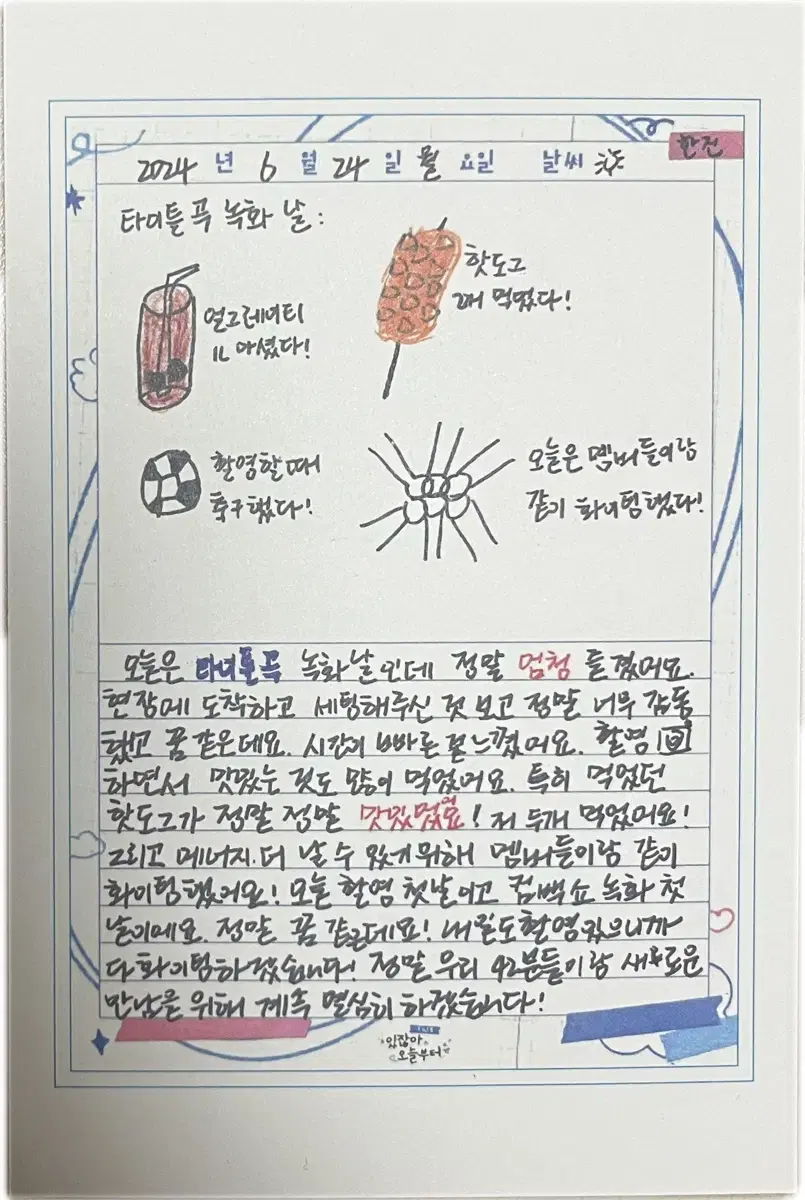 한진
2024 년 6 월 24 일 월 요일 날씨
타이틀 곡 녹화 날:
핫도그
2개 먹었다!
얼그레이티
1L 마셨다!
촬영할 때
축구했다!
오늘은 멤버들이랑
같이 화이팅했다!
오늘은 타이틀곡 녹화날인데 정말 엄청 즐겼어요.
현장에 도착하고 세팅해주신 것 보고 정말 너무 감동
했고 꿈 같은데요. 시간이 빠른 걸 느꼈어요. 촬영
하면서 맛있는 것도 많이 먹었어요. 특히 먹었던
핫도그가 정말 정말 맛있었어요! 저 두개 먹었어요!
그리고 에너지 더 날 수 있게 위해 멤버들이랑 같이
화이팅했어요! 오늘 촬영 첫날이고 컴백쇼 녹화 첫
날이에요. 정말 꿈 같은데요! 내일도 촬영 있으니까
다 화이팅하겠습니다! 정말 우리 42분들이랑 새로운
만남을 위해 계속 열심히 하겠습니다!
있잖아
오늘부터